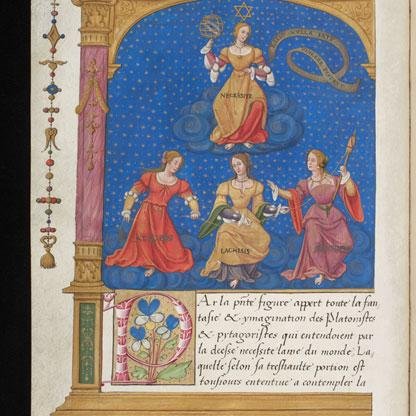 NECESSITE
LACHESIS
PAr la pñte figure appert toute la fan
tasie & ymagination des Platonistes
& pytagoristes qui entendoient par
la deesse necessite lame du monde, La
quelle selon sa treshaulte portion est
tousiours ententiue a contempler la